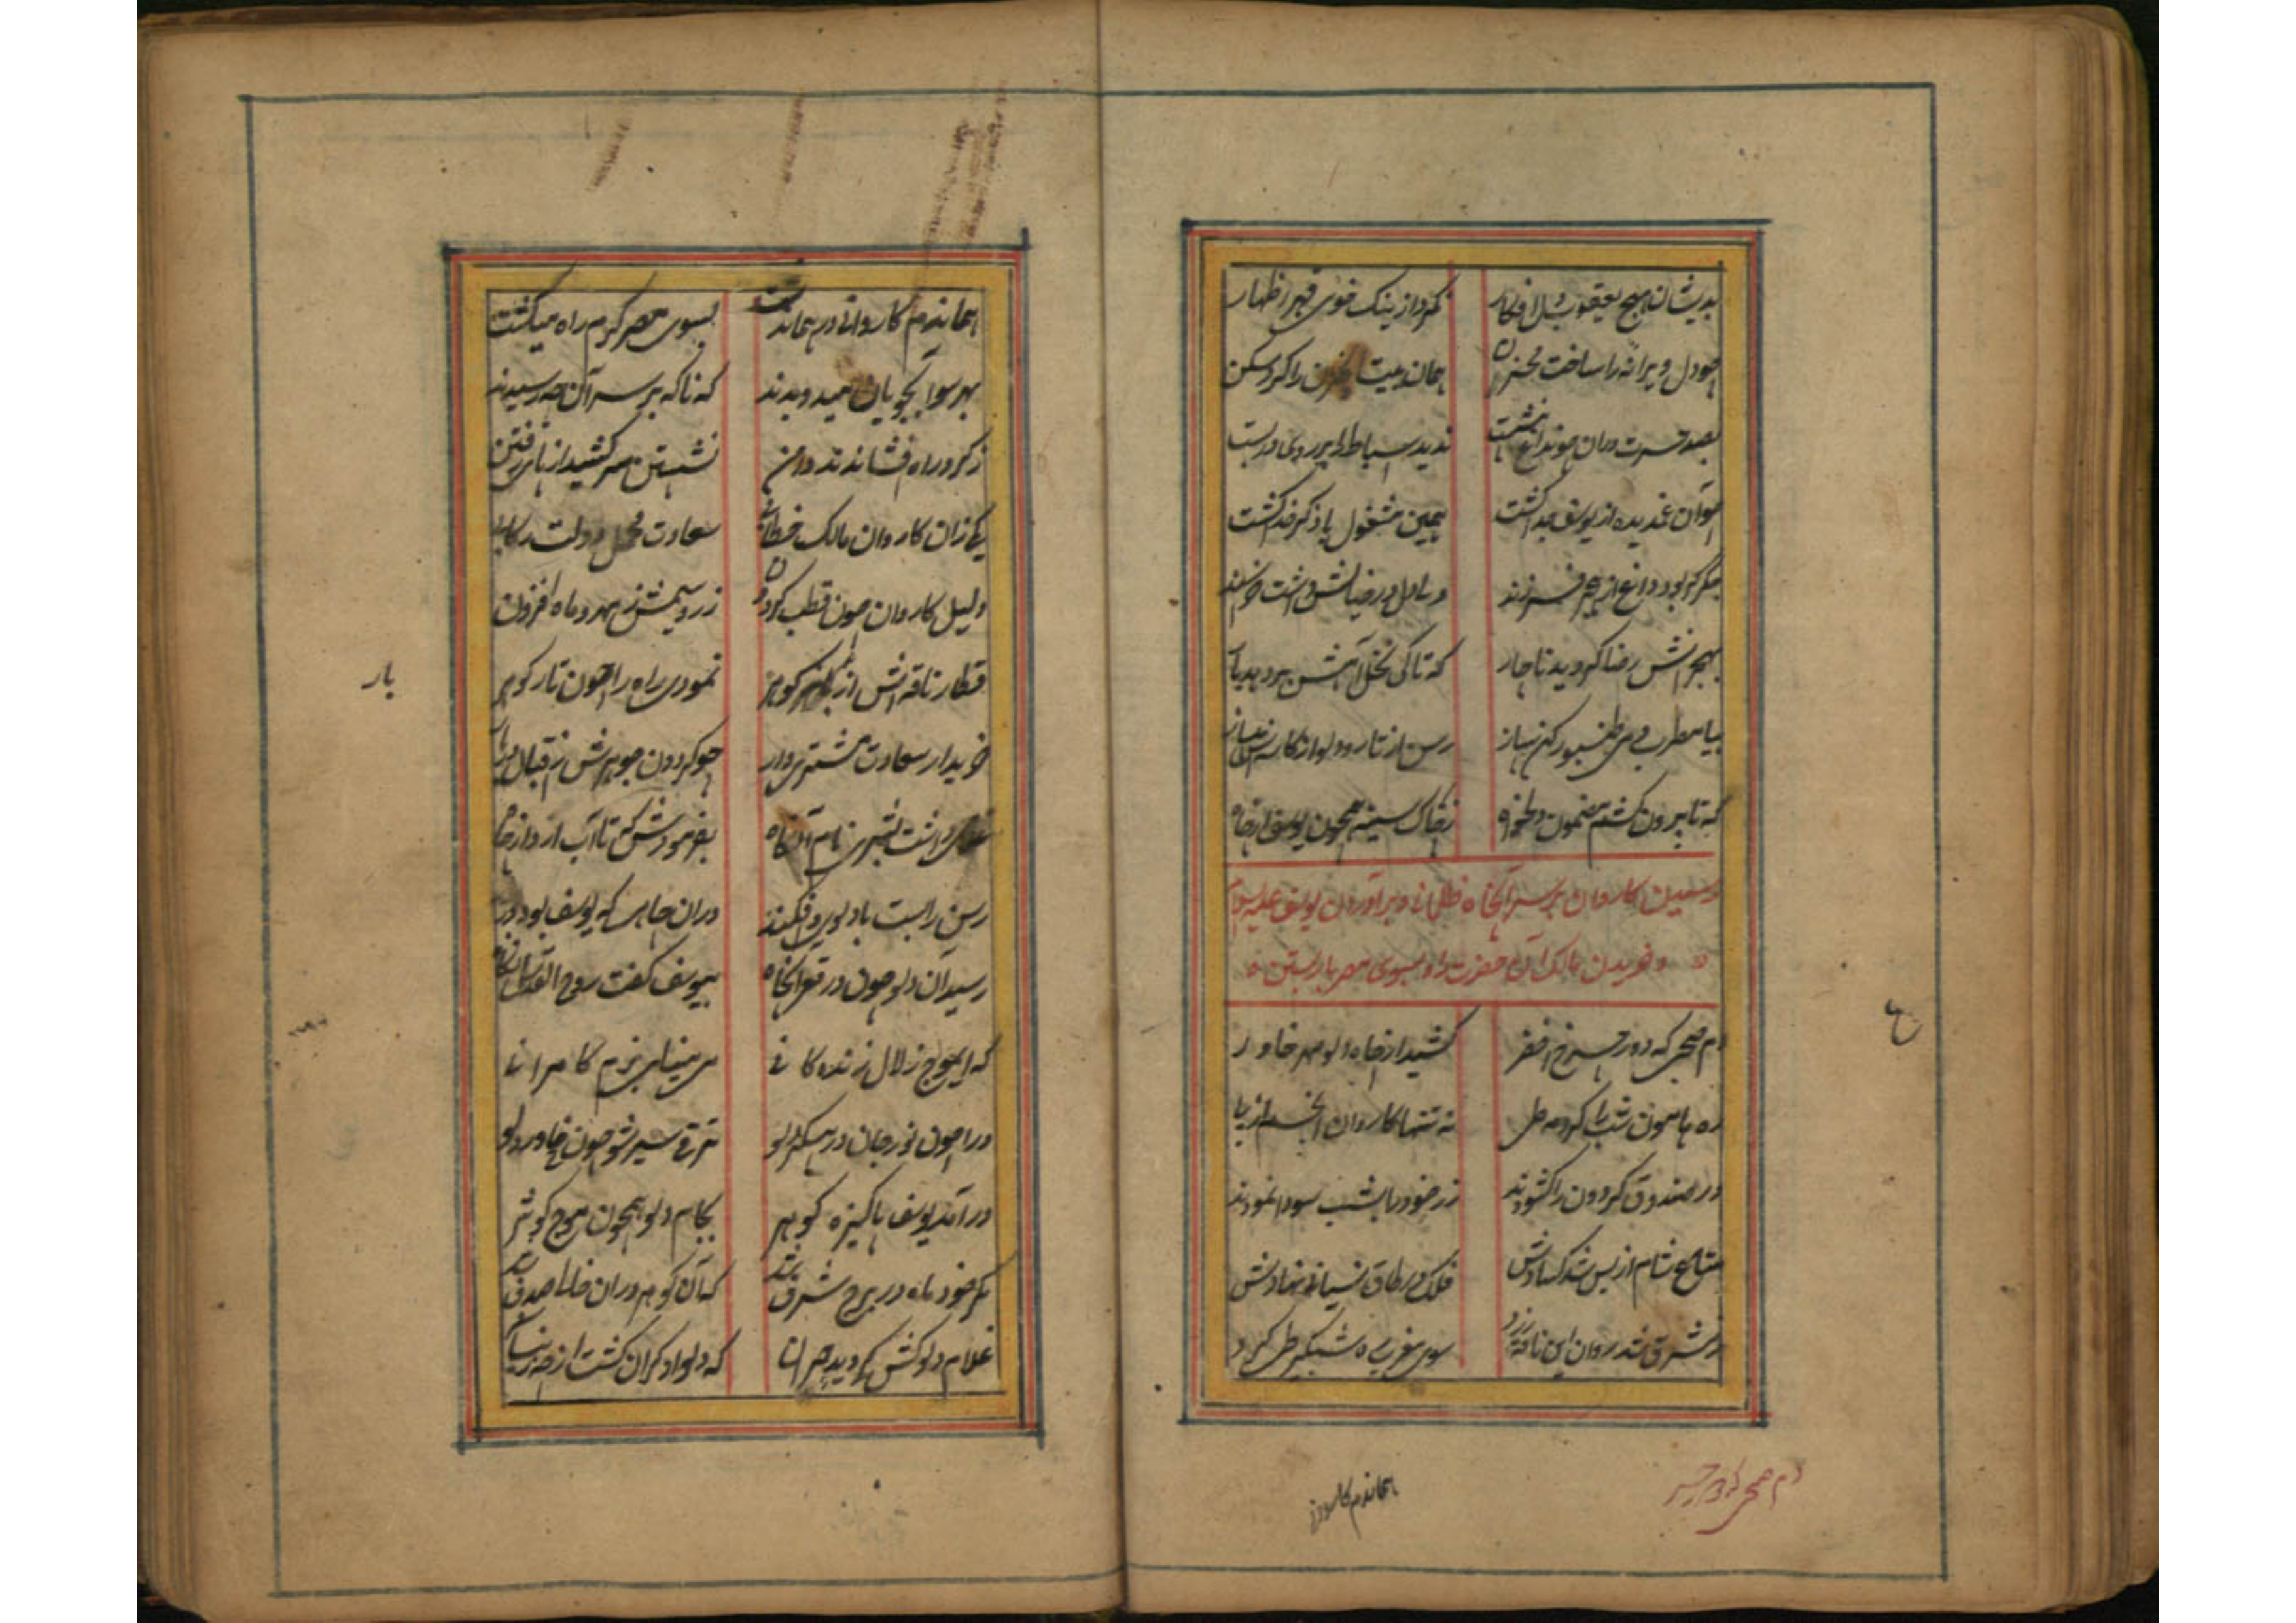 بدیشان هیچ یعقوب دل افکار نکرد از نیک خوی قهر اظهار
چو دل ویرانه را ساخت مخزن همان بیت الحزن را کرد مسکن
بصد حسرت دران چون داغ بنشست ندید اسباط را بر روی در بست
چو آن غمدیده از یوسف جدا گشت همین مشغول با ذکر خدا گشت
جگر گر بود داغ از هجر فرزند ولی دل در رضایش داشت خرسند
بهجرانش رضا گردید ناچار که تا کی نخل آهش بر دهد بار
بیا مطرب طنبور کن ساز رسن از تار و دلو از کاسه
که تا بیرون کشم مضمون دلخواه ز چاک سینه همچون یوسف از چاه
رسیدن کاروان بر سر آنچاه ظلمانی و برآوردن یوسف علیه السلام
و خریدن مالک آن حضرت را و بسوی مصر بار بستن
دم صبحی که دور چرخ اخضر کشید از چاه دلو مهر خاور
ره هامون شب را کرده طی نه تنها کاروان انجم از پا
در صندوق گردون را گشودند زر خود را بشب سودا نمودند
متاع شام از بس شد کسادش فلک در طاق نسیان نهادش
ز مشرق شد روان این ناقه زرد سوی مغرب ره شبگیر طی کرد
هماندم کاروانی در هماندشت بسوی مصر گرم راه میگشت
بهر سو آبجویان میدویدند که ناگه بر سر آن چه رسیدند
ز گرد راه افشاندند دامن نشستن سر کشید از پای رفتن
یکی زان کاروان مالک خطابی سعادت محمل دولت رکابی
دلیل کاروان چون قطب گردون زر و سیمش ز مهر و ماه افزون
قطار ناقه‌اش از گوهر نمودی راه را چون تار گوهر
خریدار سعادت مشتری وار چو گردون جوهرش ز اقبال
غلامی داشت بشری نام آنگاه بفرمودش که تا آب آرد از چاه
رسن را بست با دلو و فکندند دران چاهی که یوسف بود در بند
رسید آن دلو چون در قعر آنچاه بیوسف گفت روح القدس آنگاه
که ای موج زلال زندگانی می مینای بزم کامرانی
درا چون نور جان در پیکر دلو ترقی سیر شو چون خاور دلو
درآمد یوسف پاکیزه گوهر بکام دلو همچون موج کوثر
مگر خود ماه در برج شرف شد که آن گوهر دران ظلما صدف شد
غلام دلوکش گردید حیران که دلو او گران گشت از چه
بار
ع
دم صبحی که دور چرخ
هماندم کاروانی